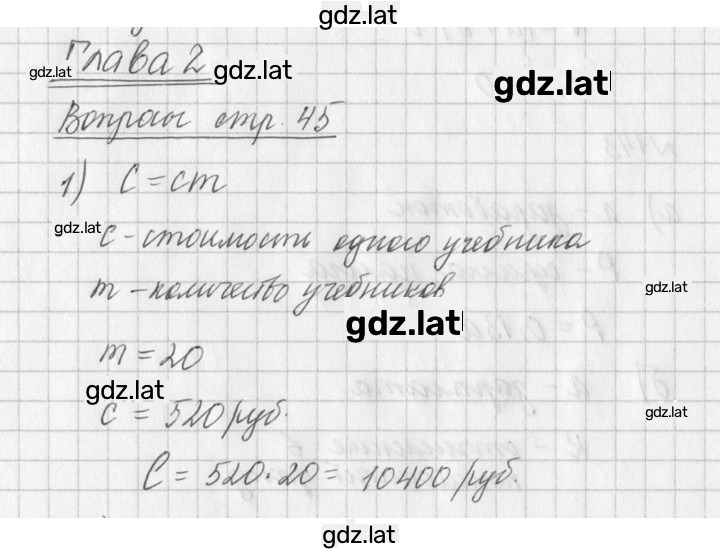 gdz.lat
Глава 2
gdz.lat
gdz.lat
gdz.lat
Вопросы стр. 45
1) C = cm
gdz.lat
c - стоимость одного учебника
m - количество учебников
gdz.lat
gdz.lat
m = 20
gdz.lat
gdz.lat
c = 520 руб.
C = 520 · 20 = 10400 руб.
gdz.lat